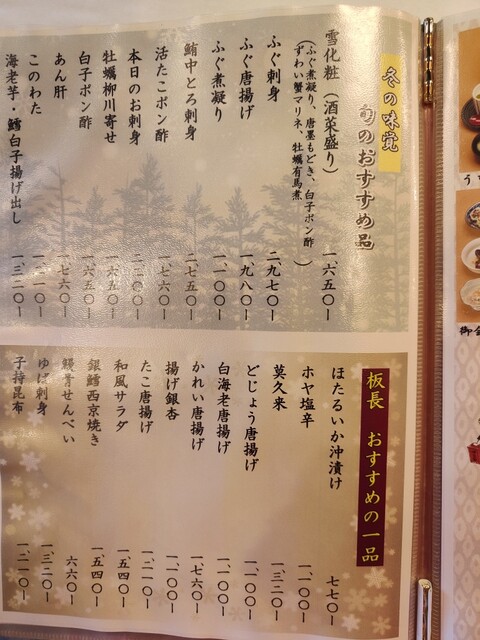 冬の味覚
旬のおすすめ品
雪化粧(酒菜盛り) 一、六五〇ー
(ふぐ煮凝り、唐墨もどき、白子ポン酢
ずわい蟹マリネ、牡蠣有馬煮)
ふぐ刺身 二、九七〇ー
ふぐ唐揚げ 一、九八〇ー
ふぐ煮凝り 一、一〇〇ー
鮪中とろ刺身 二、七五〇ー
活たこポン酢 一、七六〇ー
本日のお刺身 二、二〇〇ー
牡蠣柳川寄せ 一、六五〇ー
白子ポン酢 一、六五〇ー
あん肝 一、七六〇ー
このわた 一、二一〇ー
海老芋・鱈白子揚げ出し 一、三二〇ー
板長 おすすめの一品
ほたるいか沖漬け 七七〇ー
ホヤ塩辛 一、一〇〇ー
莫久来 一、三二〇ー
どじょう唐揚げ 一、一〇〇ー
白海老唐揚げ 一、一〇〇ー
かれい唐揚げ 一、七六〇ー
揚げ銀杏 一、一〇〇ー
たこ唐揚げ 一、二一〇ー
和風サラダ 一、五四〇ー
銀鱈西京焼き 一、五四〇ー
鰻骨せんべい 六六〇ー
ゆば刺身 一、三二〇ー
子持昆布 一、二一〇ー